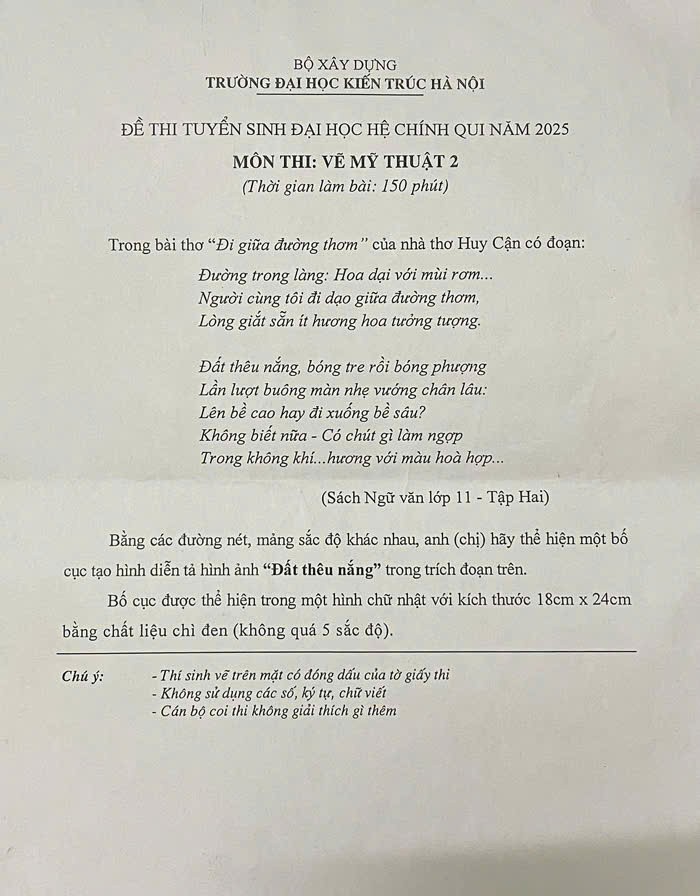 BỘ XÂY DỰNG
TRƯỜNG ĐẠI HỌC KIẾN TRÚC HÀ NỘI
ĐỀ THI TUYỂN SINH ĐẠI HỌC HỆ CHÍNH QUI NĂM 2025
MÔN THI: VẼ MỸ THUẬT 2
(Thời gian làm bài: 150 phút)
Trong bài thơ “Đi giữa đường thơm” của nhà thơ Huy Cận có đoạn:
Đường trong làng: Hoa dại với mùi rơm...
Người cùng tôi đi dạo giữa đường thơm,
Lòng giắt sẵn ít hương hoa tưởng tượng.
Đất thêu nắng, bóng tre rồi bóng phượng
Lần lượt buông màn nhẹ vướng chân lâu:
Lên bề cao hay đi xuống bề sâu?
Không biết nữa - Có chút gì làm ngợp
Trong không khí...hương với màu hoà hợp...
(Sách Ngữ văn lớp 11 - Tập Hai)
Bằng các đường nét, mảng sắc độ khác nhau, anh (chị) hãy thể hiện một bố
cục tạo hình diễn tả hình ảnh “Đất thêu nắng” trong trích đoạn trên.
Bố cục được thể hiện trong một hình chữ nhật với kích thước 18cm x 24cm
bằng chất liệu chì đen (không quá 5 sắc độ).
Chú ý: - Thí sinh vẽ trên mặt có đóng dấu của tờ giấy thi
- Không sử dụng các số, ký tự, chữ viết
- Cán bộ coi thi không giải thích gì thêm